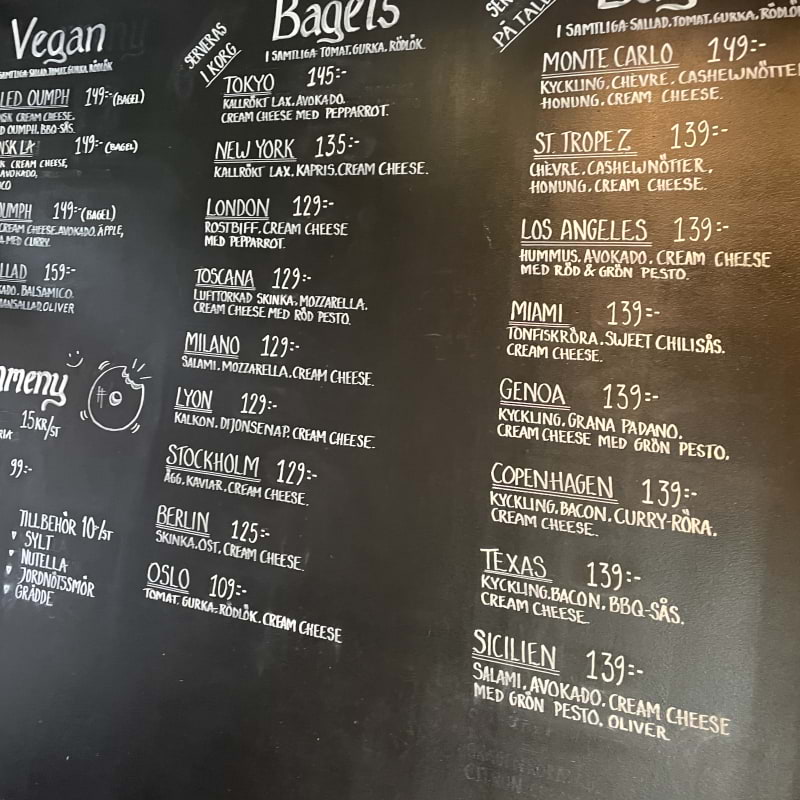 Vegan
I SAMTLIGA: SALLAD, TOMAT, GURKA, RÖDLÖK
OUMPH 149:- (BAGEL)
CREAM CHEESE,
OUMPH, BBQ-SÅS.
149:- (BAGEL)
CREAM CHEESE,
AVOKADO,
149:- (BAGEL)
CREAM CHEESE, AVOKADO, ÄPPLE,
MED CURRY.
159:-
BALSAMICO.
OLIVER
15KR/ST
99:-
TILLBEHÖR 10-/ST
SYLT
NUTELLA
JORDNÖTSSMÖR
GRÄDDE
SERVERAS
I KORG
Bagels
I SAMTLIGA: TOMAT, GURKA, RÖDLÖK.
TOKYO 145:-
KALLRÖKT LAX, AVOKADO.
CREAM CHEESE MED PEPPARROT.
NEW YORK 135:-
KALLRÖKT LAX, KAPRIS, CREAM CHEESE.
LONDON 129:-
ROSTBIFF, CREAM CHEESE
MED PEPPARROT.
TOSCANA 129:-
LUFTTORKAD SKINKA, MOZZARELLA.
CREAM CHEESE MED RÖD PESTO.
MILANO 129:-
SALAMI, MOZZARELLA, CREAM CHEESE.
LYON 129:-
KALKON, DIJONSENAP, CREAM CHEESE.
STOCKHOLM 129:-
ÄGG, KAVIAR, CREAM CHEESE.
BERLIN 125:-
SKINKA, OST, CREAM CHEESE.
OSLO 109:-
TOMAT, GURKA, RÖDLÖK, CREAM CHEESE
PÅ
I SAMTLIGA: SALLAD, TOMAT, GURKA, RÖDLÖK
MONTE CARLO 149:-
KYCKLING, CHÈVRE, CASHEWNÖTTER
HONUNG, CREAM CHEESE.
ST. TROPEZ 139:-
CHÈVRE, CASHEWNÖTTER,
HONUNG, CREAM CHEESE.
LOS ANGELES 139:-
HUMMUS, AVOKADO, CREAM CHEESE
MED RÖD & GRÖN PESTO.
MIAMI 139:-
TONFISKRÖRA, SWEET CHILISÅS.
CREAM CHEESE.
GENOA 139:-
KYCKLING, GRANA PADANO,
CREAM CHEESE MED GRÖN PESTO.
COPENHAGEN 139:-
KYCKLING, BACON, CURRY-RÖRA,
CREAM CHEESE.
TEXAS 139:-
KYCKLING, BACON, BBQ-SÅS,
CREAM CHEESE
SICILIEN 139:-
SALAMI, AVOKADO, CREAM CHEESE
MED GRÖN PESTO, OLIVER